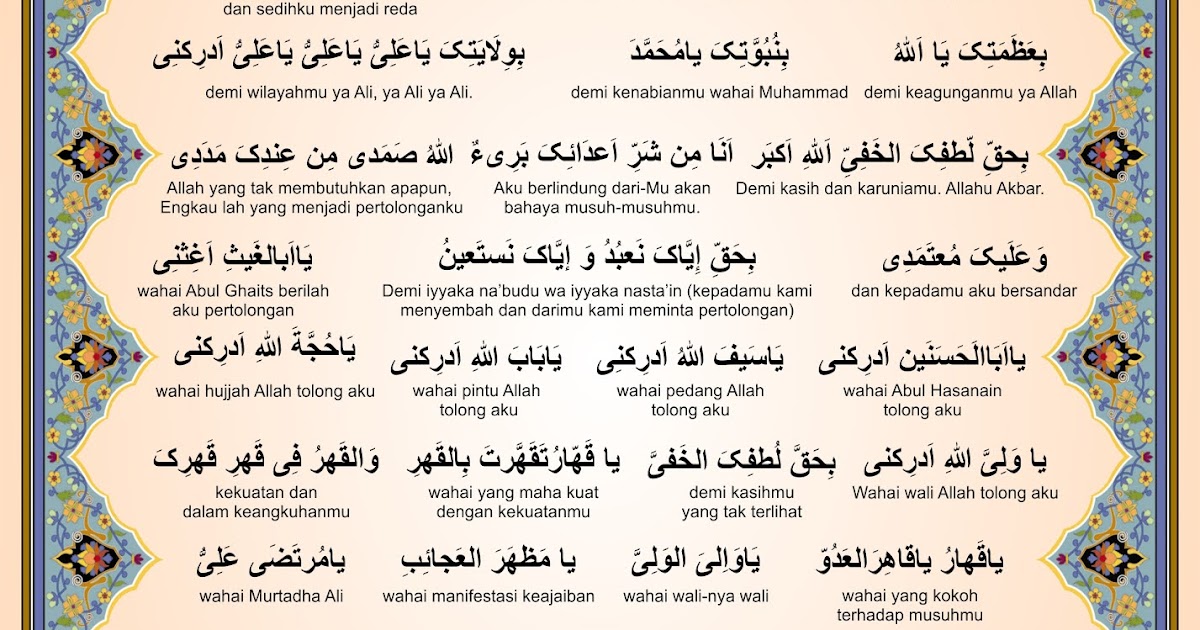 dan sedihku menjadi reda
بِعَظَمَتِکَ یَا اَللهُ بِنُبُوَّتِکَ یامُحَمَّدَ بِوِلَایَتِکَ یَاعَلِیُّ یَاعَلِیُّ یَاعَلِیُّ اَدرِکنِی
demi keagunganmu ya Allah demi kenabianmu wahai Muhammad demi wilayahmu ya Ali, ya Ali ya Ali.
بِحَقِّ لُّطفِکَ الخَفِیِّ اَللهِ اَکبَر اَنَا مِن شَرِّ اَعدَائِکَ بَرِیءٌ اَللهُ صَمَدِی مِن عِندِکَ مَدَدِی
Demi kasih dan karuniamu. Allahu Akbar. Aku berlindung dari-Mu akan Allah yang tak membutuhkan apapun,
bahaya musuh-musuhmu. Engkau lah yang menjadi pertolonganku
وَعَلَیکَ مُعتَمَدِی بِحَقِّ إِیَّاکَ نَعبُدُ وَ إِیَّاکَ نَستَعینُ یَااَبالغَیثِ اَغِثنِی
dan kepadamu aku bersandar Demi iyyaka na’budu wa iyyaka nasta’in (kepadamu kami wahai Abul Ghaits berilah
menyembah dan darimu kami meminta pertolongan) aku pertolongan
یااَبَاالَحَسَنَین اَدرِکنی یَاسَیفَ اللهُ اَدرِکنِی یَابَابَ اللهِ اَدرِکنی یَاحُجَّةَ اللهِ اَدرِکنی
wahai Abul Hasanain wahai pedang Allah wahai pintu Allah wahai hujjah Allah tolong aku
tolong aku tolong aku tolong aku
یا وَلِیَّ اللهِ اَدرِکنی بِحَقَّ لُطفِکَ الخَفیَّ یا قَهّارُتَقَهَّرتَ بِالقَهرِ وَالقَهرُ فِی قَهرِ قَهرِکَ
Wahai wali Allah tolong aku demi kasihmu wahai yang maha kuat kekuatan dan
yang tak terlihat dengan kekuatanmu dalam keangkuhanmu
یاقَهارُ یاقاهِرَالعَدُوّ یَاوَالِیَ الوَلِیَّ یا مَظهَرَ العَجائِبِ یامُرتَضَی عَلِیُّ
wahai yang kokoh wahai wali-nya wali wahai manifestasi keajaiban wahai Murtadha Ali
terhadap musuhmu